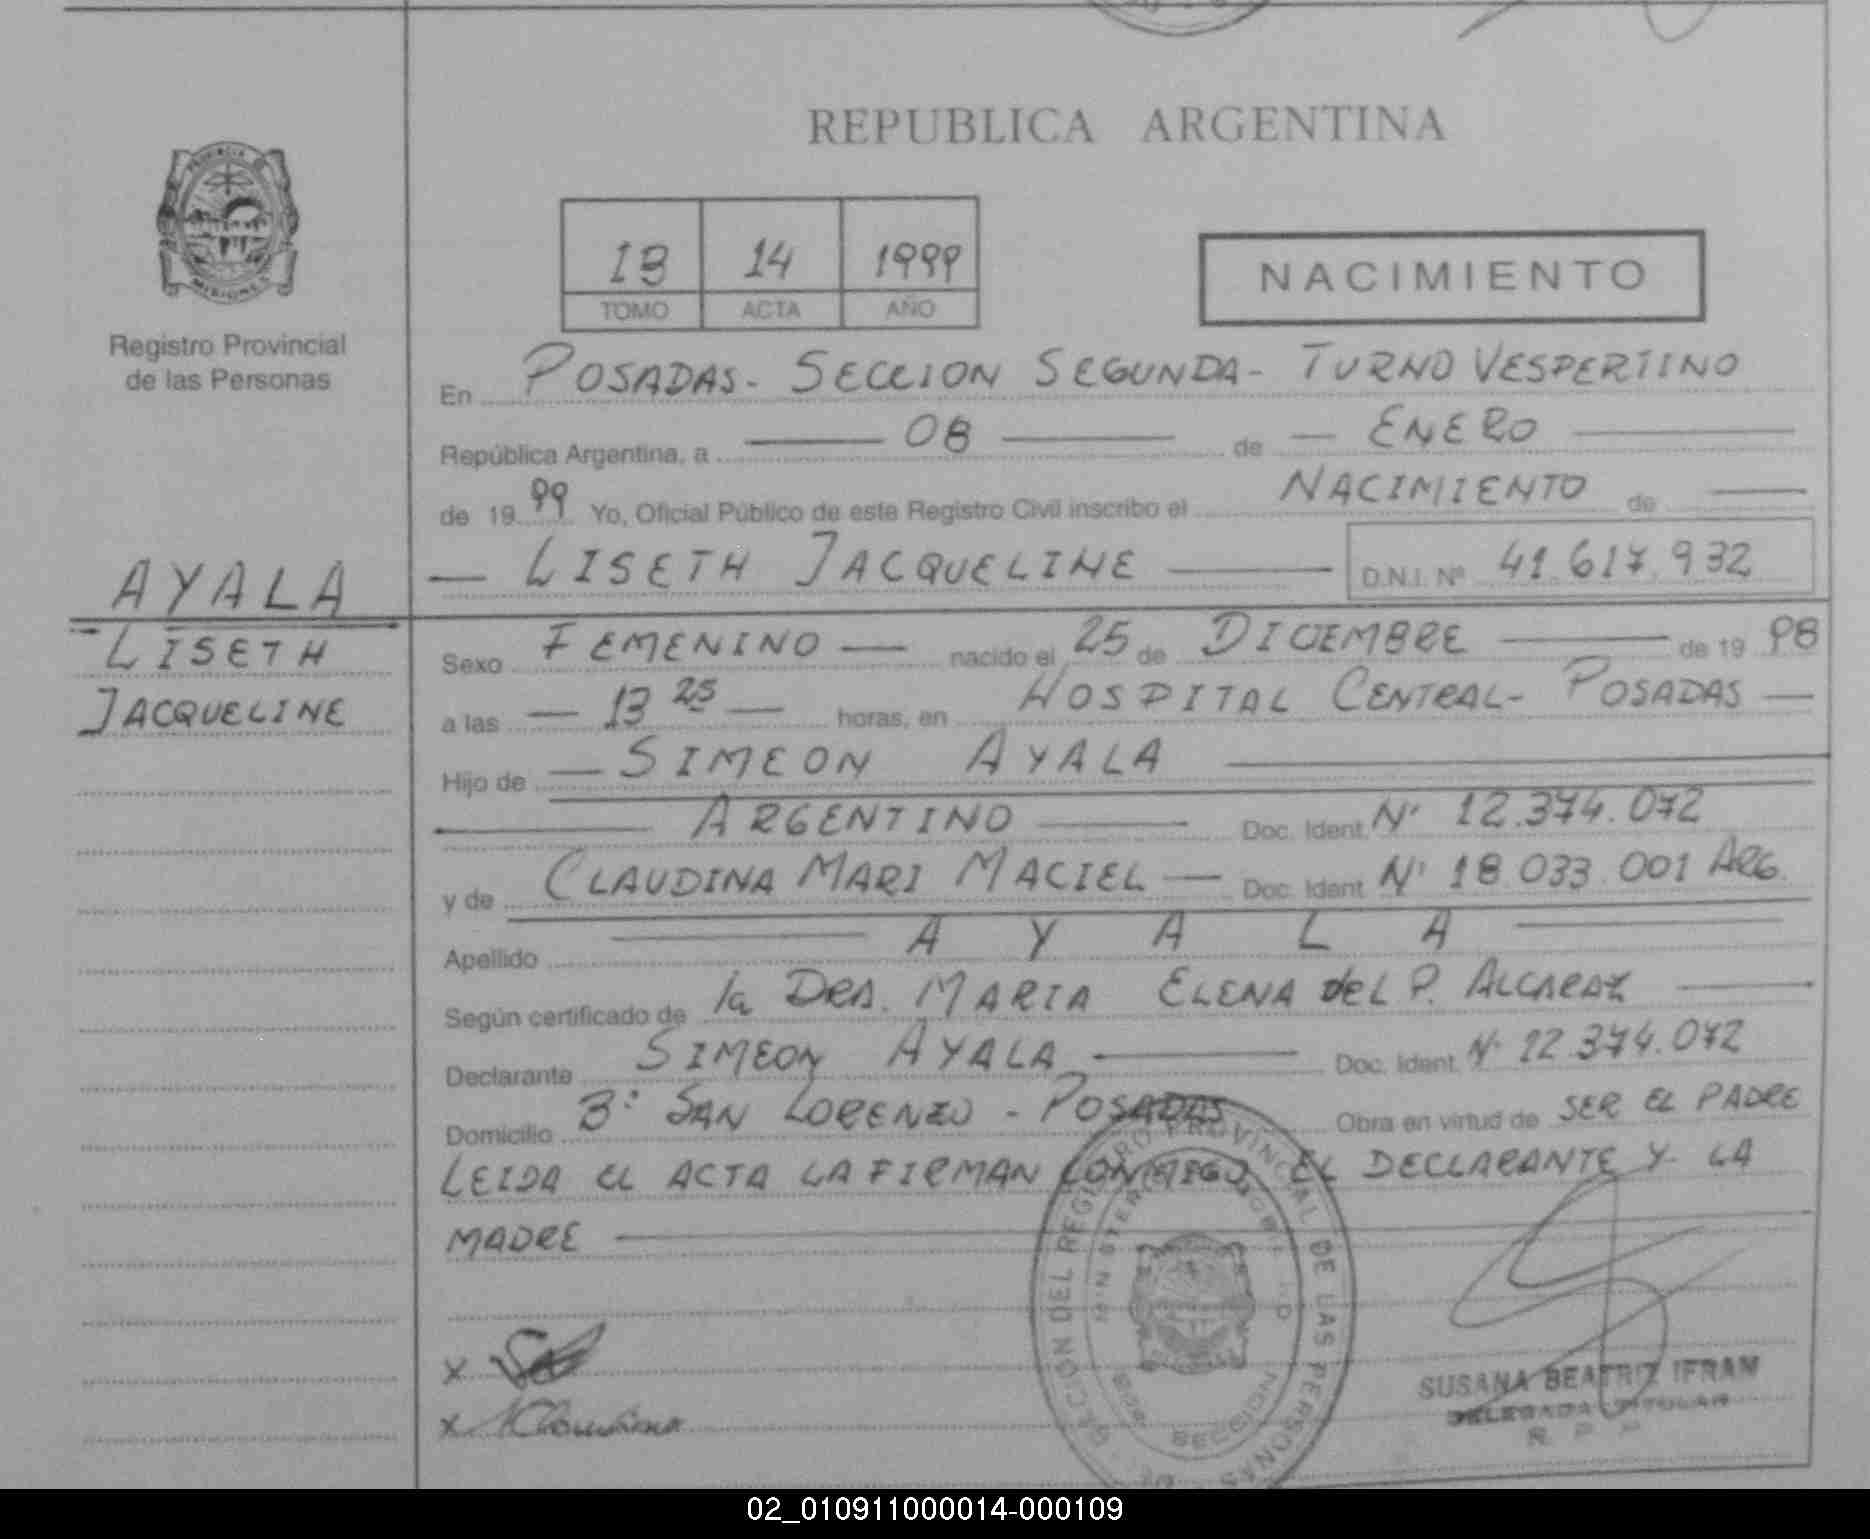 REPUBLICA ARGENTINA
PROVINCIA DE
MISIONES
Registro Provincial
de las Personas
1B 14 1999
TOMO ACTA AÑO
NACIMIENTO
En POSADAS- SECCION SEGUNDA- TURNO VESPERTINO
República Argentina, a 08 de ENERO
de 1999 Yo, Oficial Público de este Registro Civil inscribo el NACIMIENTO de
LISETH JACQUELINE D.N.I. Nº 41.617.932
AYALA
LISETH
JACQUELINE
Sexo FEMENINO nacido el 25 de DICIEMBRE de 1998
a las 13 25 horas, en HOSPITAL CENTRAL- POSADAS
Hijo de SIMEON AYALA
ARGENTINO Doc. Ident. Nº 12.374.072
y de CLAUDINA MARI MACIEL Doc. Ident. Nº 18.033.001 ARG.
Apellido AYALA
Según certificado de la DRA. MARIA ELENA del P. ALCARAZ
Declarante SIMEON AYALA Doc. Ident. Nº 12.374.072
Domicilio Bº SAN LORENZO - POSADAS Obra en virtud de SER EL PADRE
LEIDA EL ACTA LA FIRMAN CONMIGO, EL DECLARANTE Y LA
MADRE
x
x Claudina
REGISTRO PROVINCIAL DE LAS PERSONAS
SUSANA BEATRIZ IFRAN
DELEGADA TITULAR
R. P. P.
02_010911000014-000109